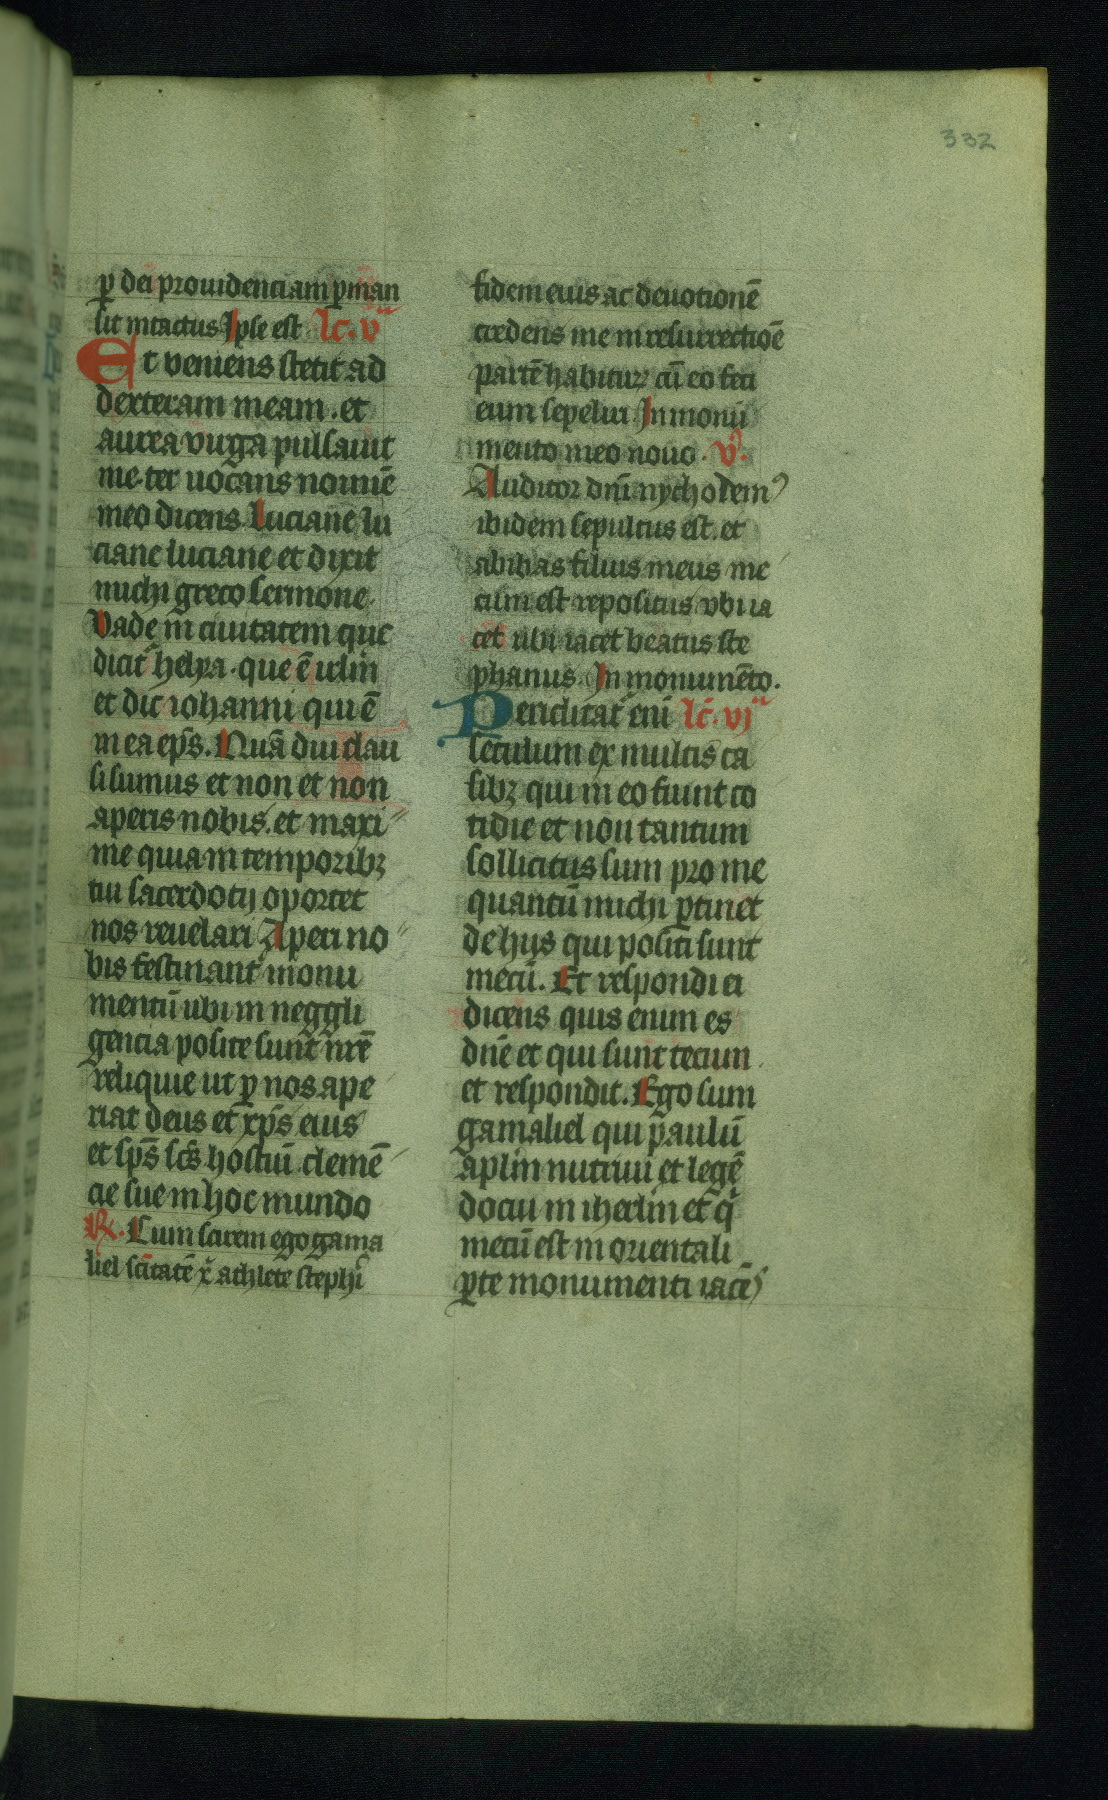 332
ꝑ dei prouidenciam ꝑman
sit intactus Ipse est lc̄. v
Et veniens stetit ad
dexteram meam . et
aurea virga pulsauit
me ter uocans nomīe
meo dicens Luciane lu
ciane luciane et dixit
michi greco sermone
Vade in ciuitatem que
dicit̄ helya . que ē irl̄m
et dic iohanni qui ē
in ea ep̄s. Nuā diu clau
si sumus et non et non
aperis nobis. et maxi
me quia in temporibꝫ
tui sacerdotij oportet
nos reuelari Aperi no
bis festinant̄ monu
mentū ubi in neggli
gencia posite sunt nr̄e
reliquie ut ꝑ nos ape
riat deus et xp̄s eius
et sp̄s sc̄s hostiū clemē
cie sue in hoc mundo
℟. Cum scirem ego gama
liel sc̄itatē x̄ athlete steph̄i
fidem eius ac deuotionē
credens me in resurrectiōe
partē habiturꝝ cū eo feci
eum sepeliri In monu
mento meo nouo . ℣.
Auditor dn̄i nychodemꝰ
ibidem sepultus est. et
abibas filius meus me
cum est repositus vbi ia
cet ubi iacet beatus ste
phanus In monumēto.
Periclitat̄ enī lc̄. vj
seculum ex multis ca
sibꝫ qui in eo fiunt co
tidie et non tantum
sollicitus sum pro me
quantū michi ꝑtinet
de hijs qui positi sunt
mecū. Et respondi ei
dicens quis enim es
dn̄e et qui sunt tecum
et respondit. Ego sum
gamaliel qui paulū
apl̄m nutriui et legē
docui in iherl̄m et q̄
mecū est in orientali
ꝑte monumenti iacēs